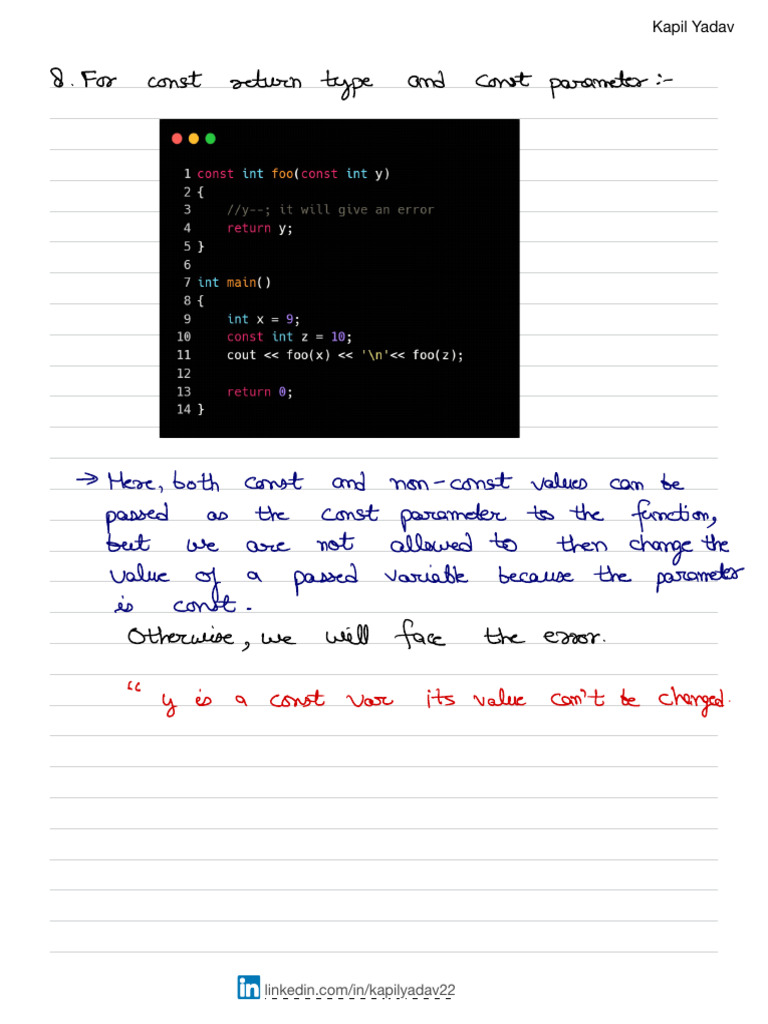 Kapil Yadav
8. For const return type and const parameter :-
1 const int foo(const int y)
2 {
3     //y--; it will give an error
4     return y;
5 }
6
7 int main()
8 {
9     int x = 9;
10     const int z = 10;
11     cout << foo(x) << '\n'<< foo(z);
12
13     return 0;
14 }
→ Here, both const and non-const values can be
passed as the const parameter to the function,
but we are not allowed to then change the
value of a passed variable because the parameter
is const.
Otherwise, we will face the error.
“ y is a const var its value can't be changed.
in linkedin.com/in/kapilyadav22